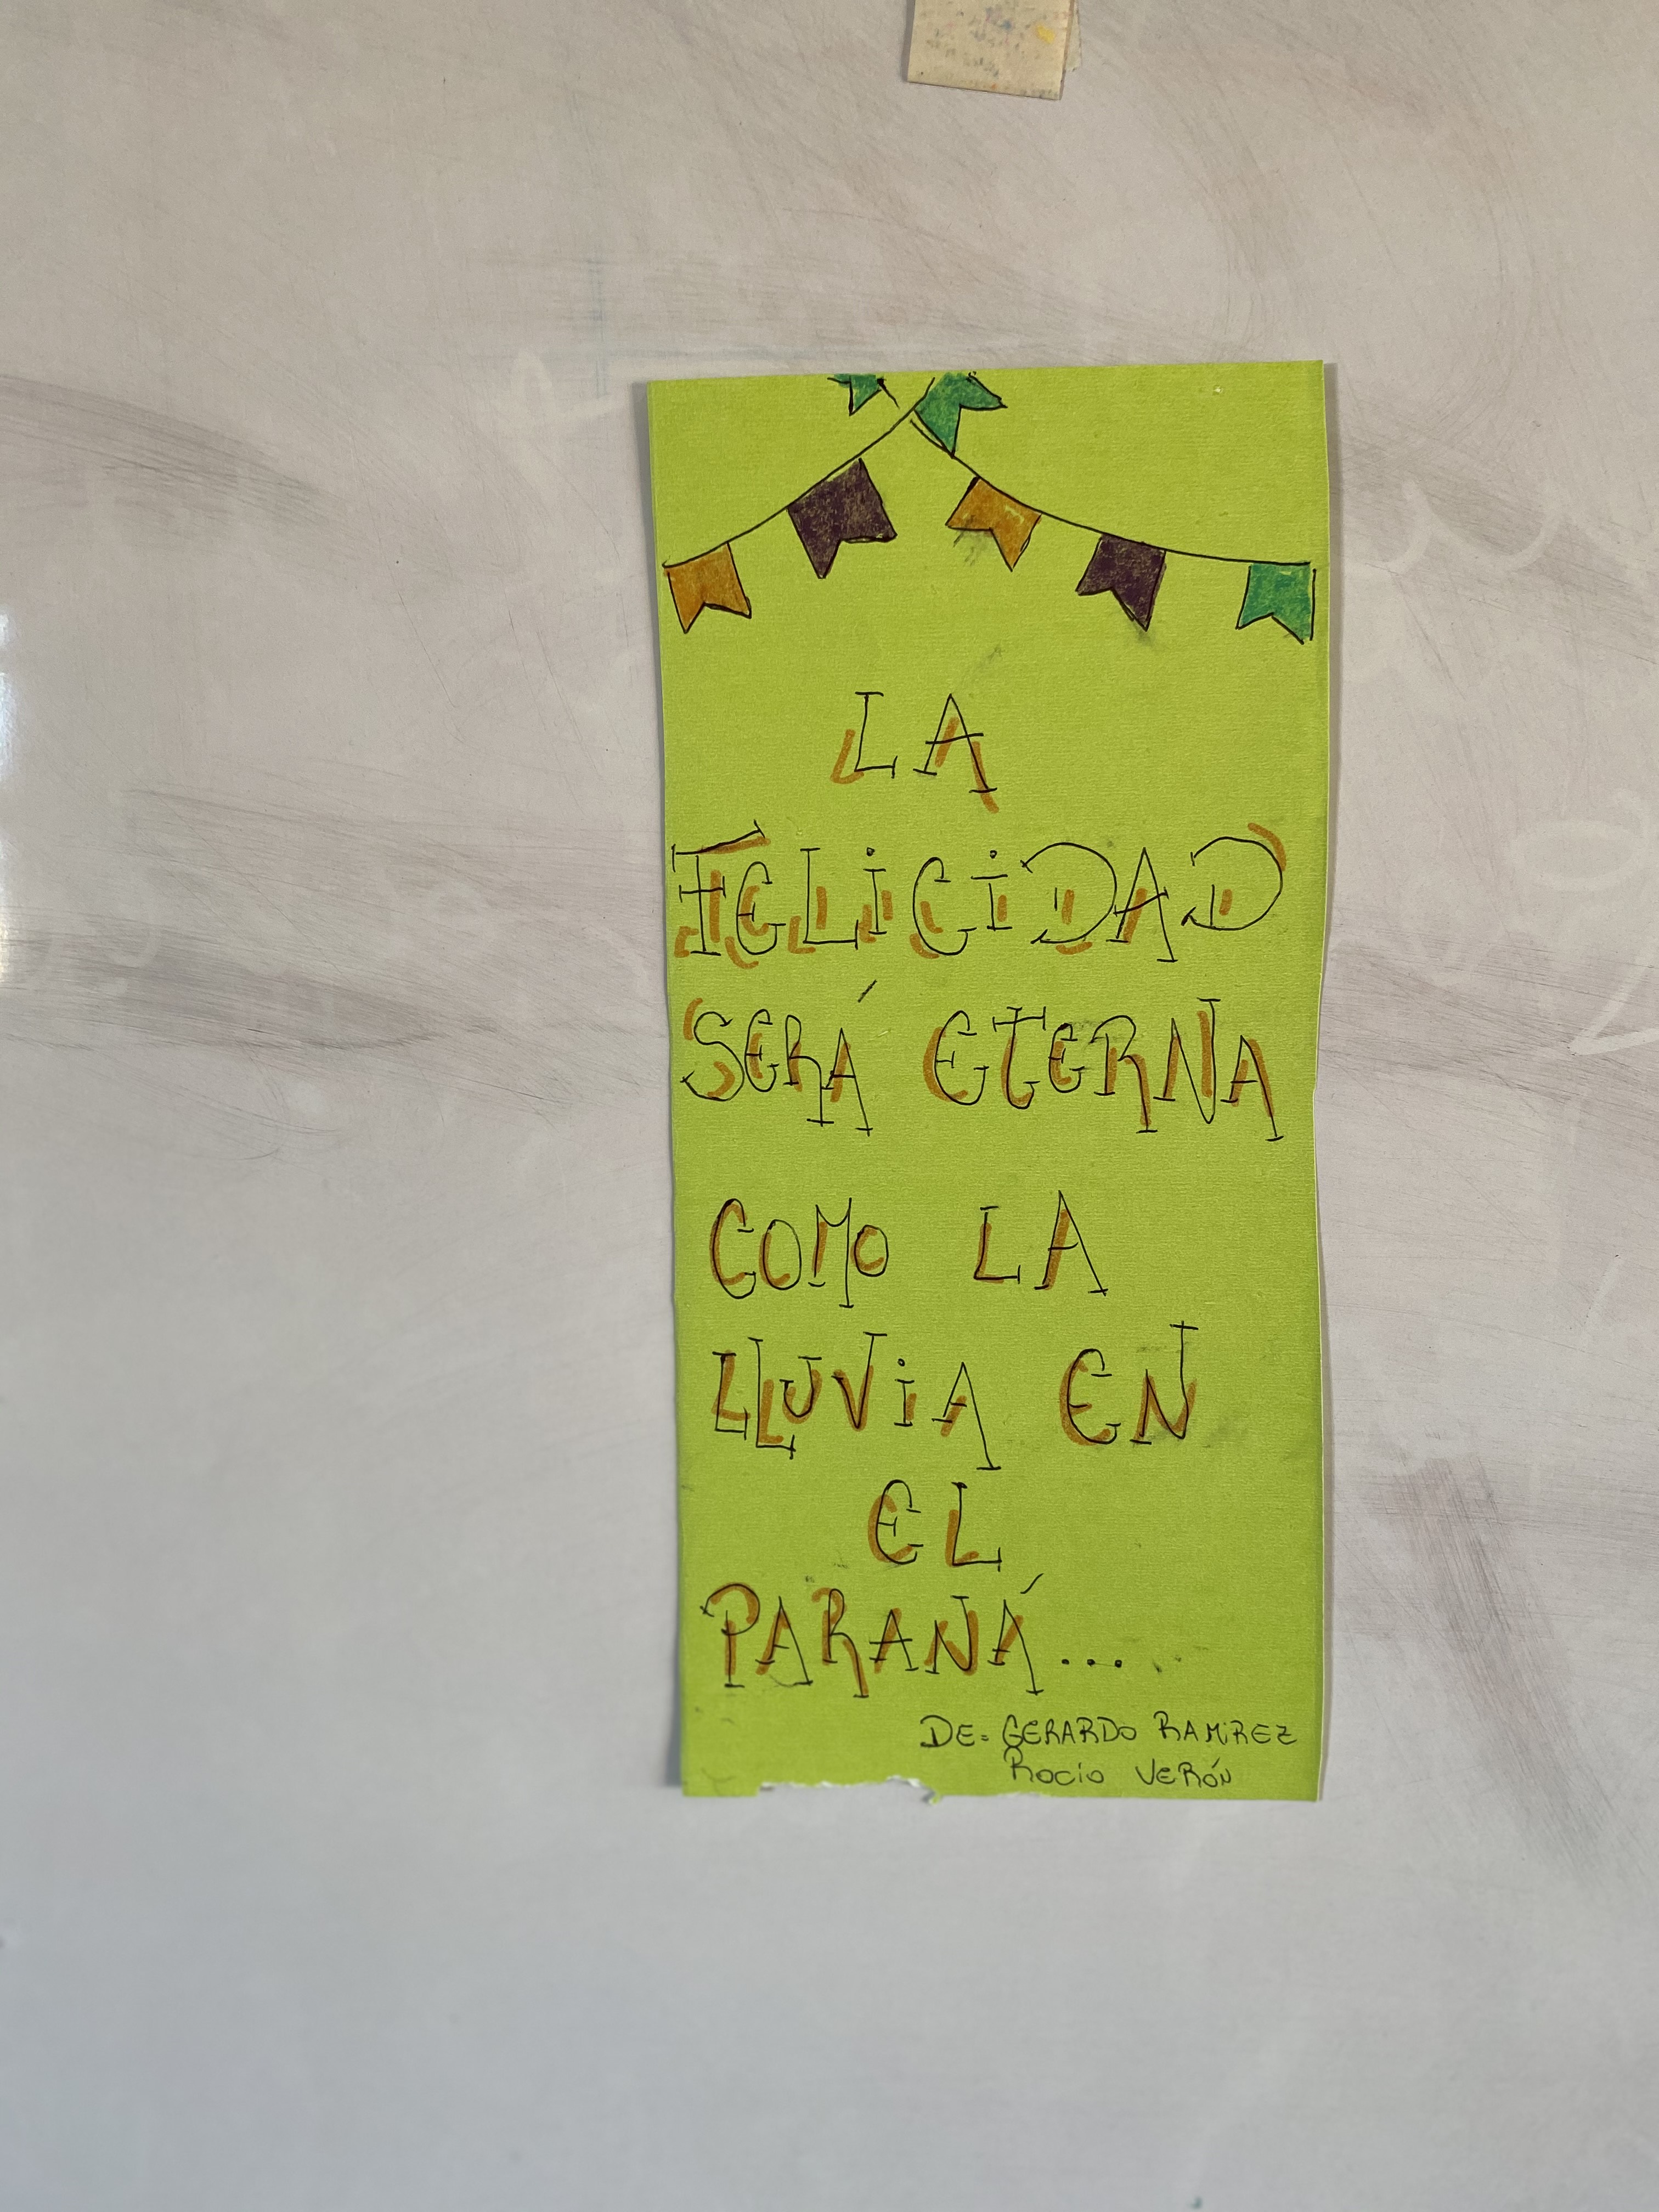 LA
FELiCiDAD
SERÁ ETERNA
COMO LA
LLUViA EN
EL
PARANÁ...
DE= GERARDO RAMiREZ
Rocio VERÓN